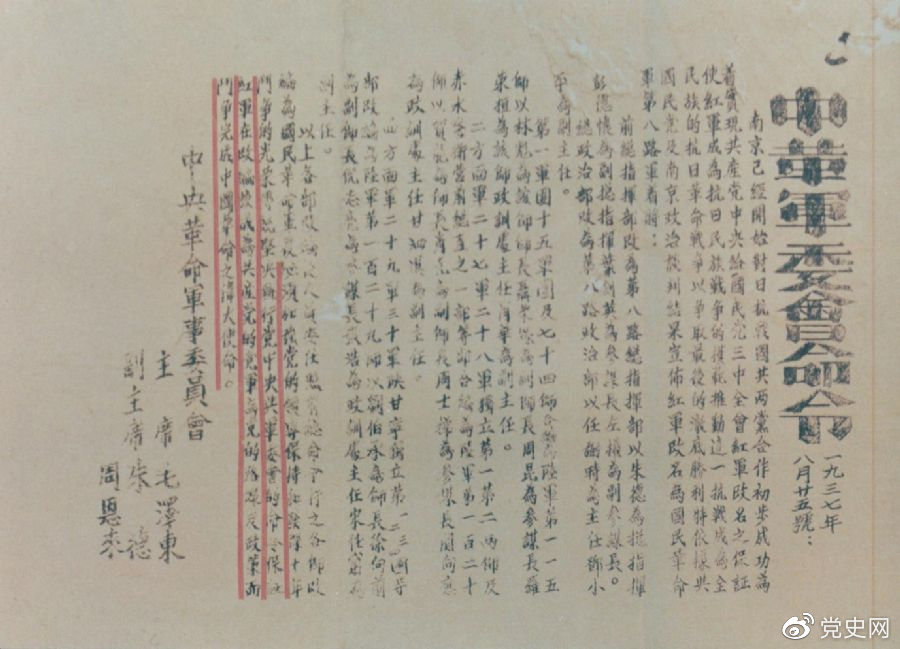 中革軍委會命令
一九三七年
八月廿五號:
南京已經開始對日抗戰國共兩黨合作初步成功為
着實現共産党中央給國民党三中全會紅軍改名之保証
使紅軍成為抗日民族戰爭的模範推動這一抗戰成為全
民族的抗日革命戰爭以爭取最後的澈底勝利特依據共
國民党及南京政治談判結果宣佈紅軍改名為國民革命
軍第八路軍着將:
前總指揮部改為第八路總指揮部以朱德為總指揮
彭德懷為副總指揮葉劍英為參謀長左權為副參謀長。
總政治部改為第八路政治部以任弼時為主任鄧小
平為副主任。
第一軍團十五軍團及七十四師合編為陸軍第一一五
師以林彪為該師師長聶榮臻為副師長周昆為參謀長羅
榮桓為該師政訓處主任肖華為副主任。
二方面軍二十七軍二十八軍獨立第一第二兩師及
赤水警衛營前總直之一部等部合編為陸軍第一百二十
師以賀龍為師長肖克為副師長周士第為參謀長關向應
為政訓處主任甘泗淇為副主任。
四方面軍二十九軍三十軍陝甘寧獨立第一二三四等
部改編為陸軍第一百二十九師以劉伯承為師長徐向前
為副師長倪志亮為參謀長張浩為政訓處主任宋任窮為
副主任。
以上各部改編後人員委任照前總命令行之各師改
編為國民革命軍後必須加強党的領導保持和發揮十年
鬥爭的光榮傳統堅決執行党中央與軍委會的命令保証
紅軍在改編後成為共產党的党軍為党的路線及政策而
鬥爭完成中國革命之偉大使命。
中央革命軍事委員會
主席毛澤東
副主席朱德
周恩來
党史网